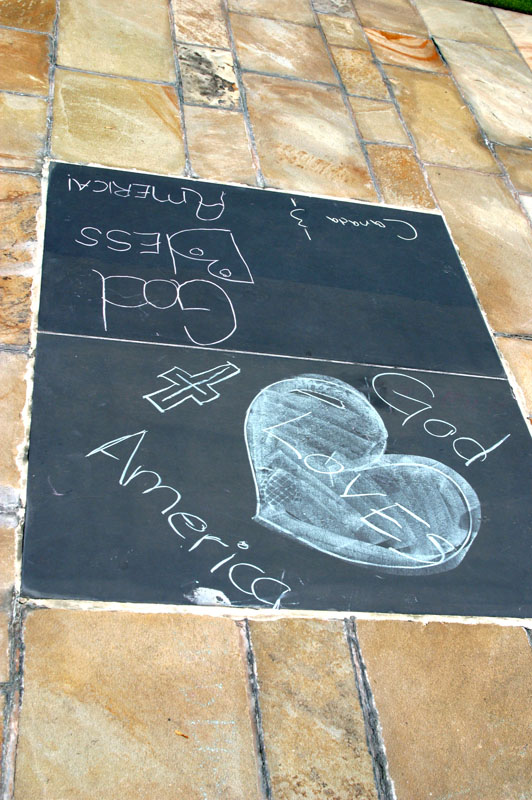 God
BLESS
Canada & AMERICA!
God
Loves
America